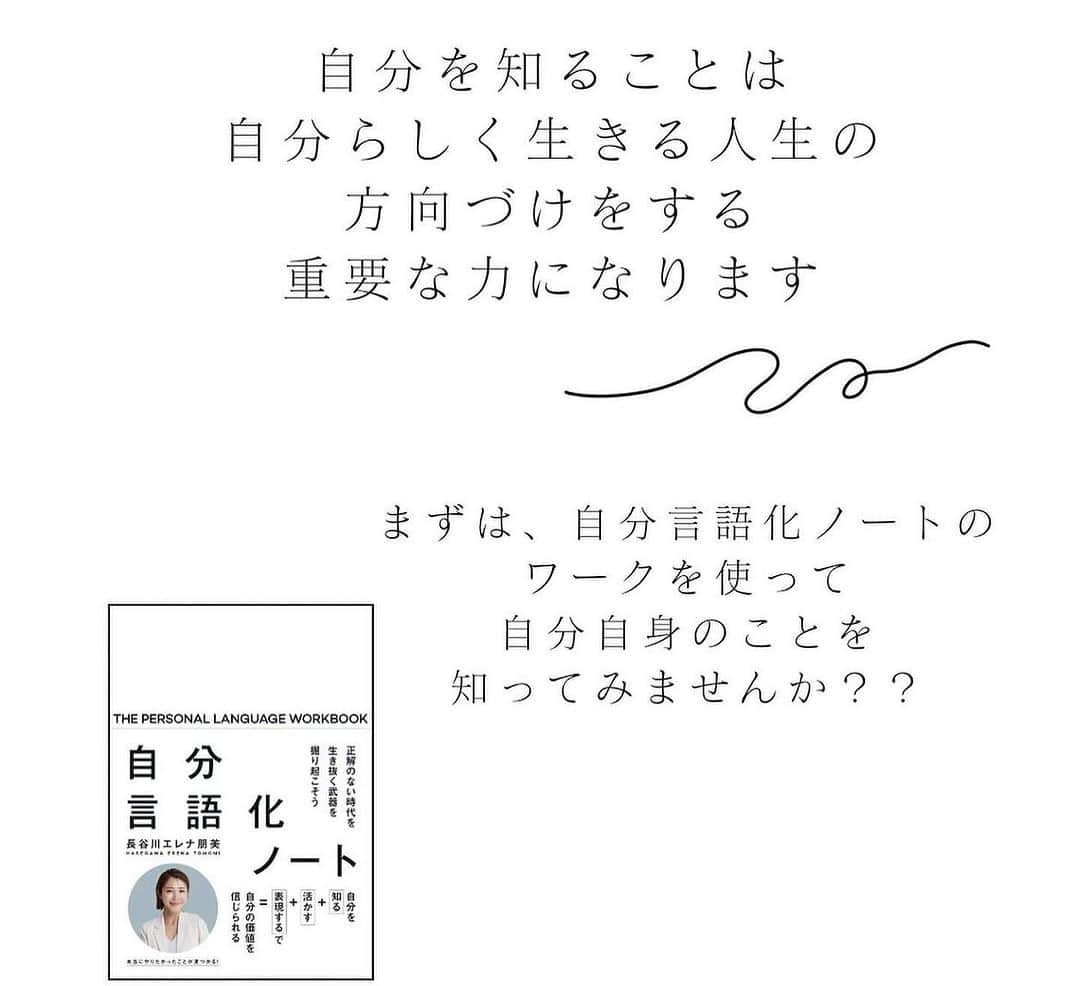 自分を知ることは
自分らしく生きる人生の
方向づけをする
重要な力になります
まずは、自分言語化ノートの
ワークを使って
自分自身のことを
知ってみませんか？？
THE PERSONAL LANGUAGE WORKBOOK
正解のない時代を
生き抜く武器を
掘り起こそう
自分
言語化
ノート
長谷川エレナ朋美
HASEGAWA ERENA TOMOMI
自分を
知る
+
活かす
+
表現するで
=
自分の価値を
信じられる
本当にやりたかったことが見つかる!